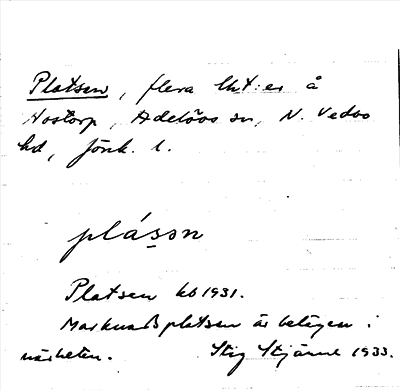 Platsen, flera lht:er å
Hostorp, Adelövs sn, N. Vedbo
hd, Jönk. l.
plásson
Platsen kb 1931.
Marknadsplatsen är belägen i
närheten. Stig Stjärne 1933.